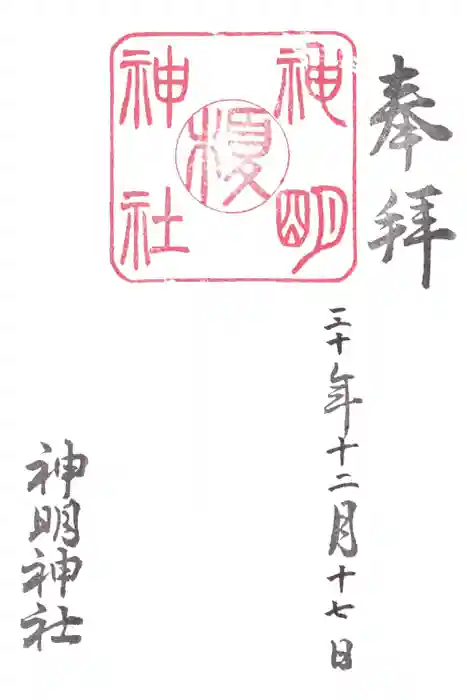 奉拝
神明
神社
榎
三十年十二月十七日
神明神社